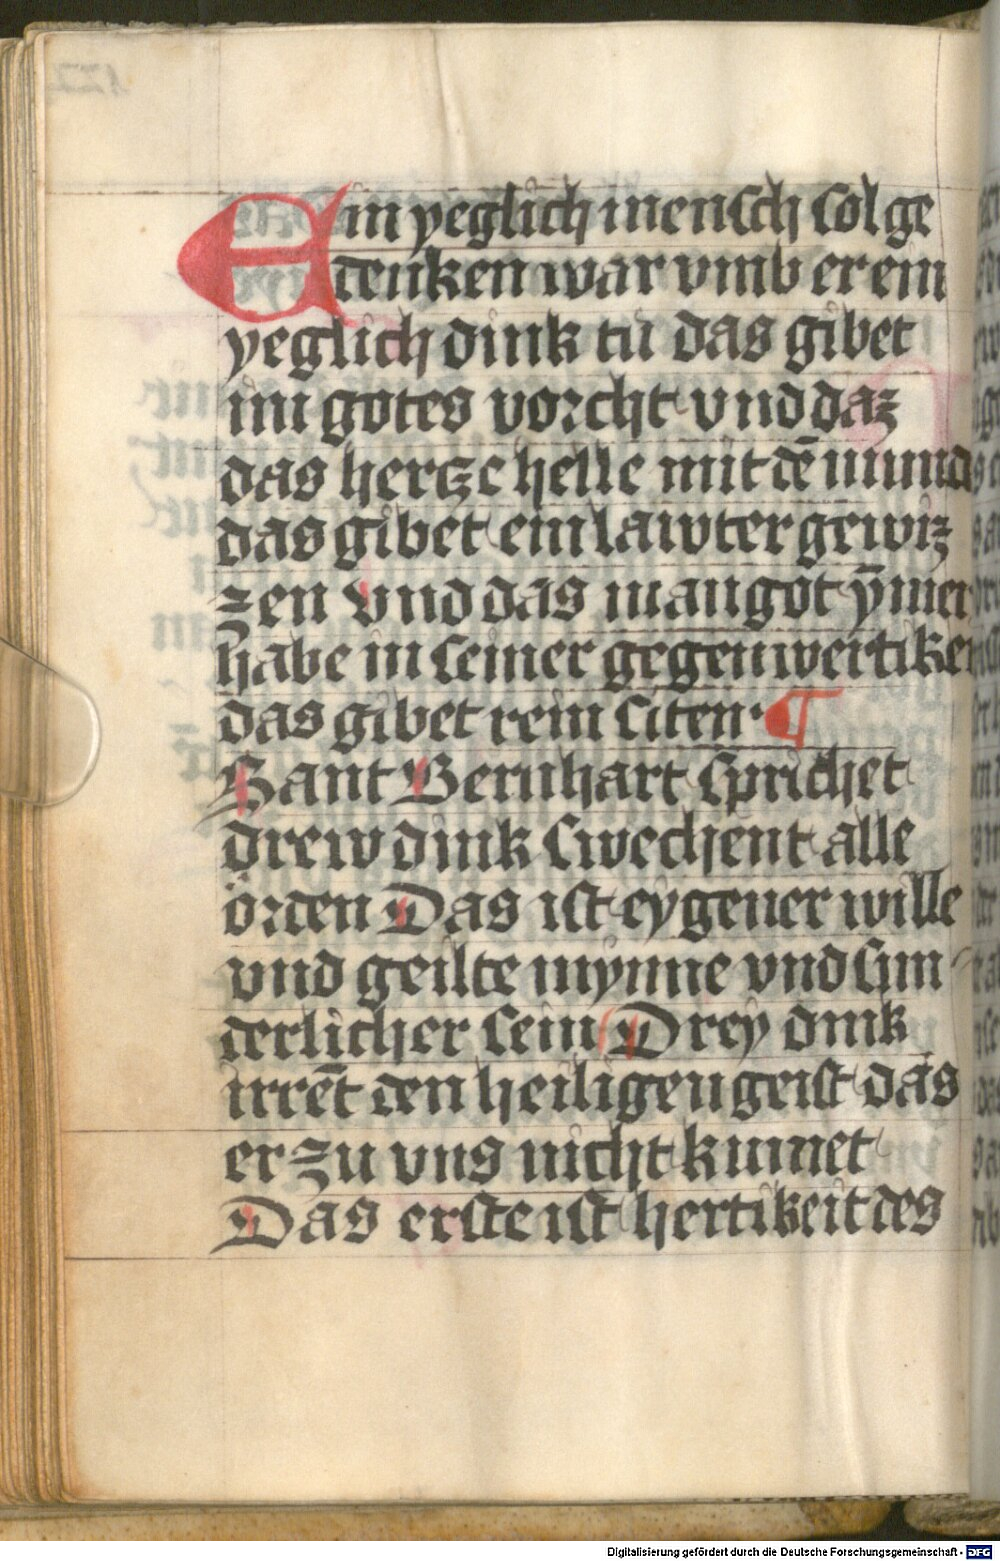 Ein yeglich mensch sol ge
denken war vmb er ein
yeglich dink tu das gibet
im gotes vorcht vnd daz
das hertze helle mit dē mund
das gibet ein lawter gewiz
zen vnd das man got ȳmer
habe in seiner gegenwertiken
das gibet rein siten · ¶
Sant Bernhart sprichet
drew dink swechent alle
örden Das ist eygener wille
vnd geilte mynne vnd sun
derlicher sein Drey dink
irrēt den heiligen geist das
er zu vns nicht kumet
Das erste ist hertikeit des
Digitalisierung gefördert durch die Deutsche Forschungsgemeinschaft - DFG